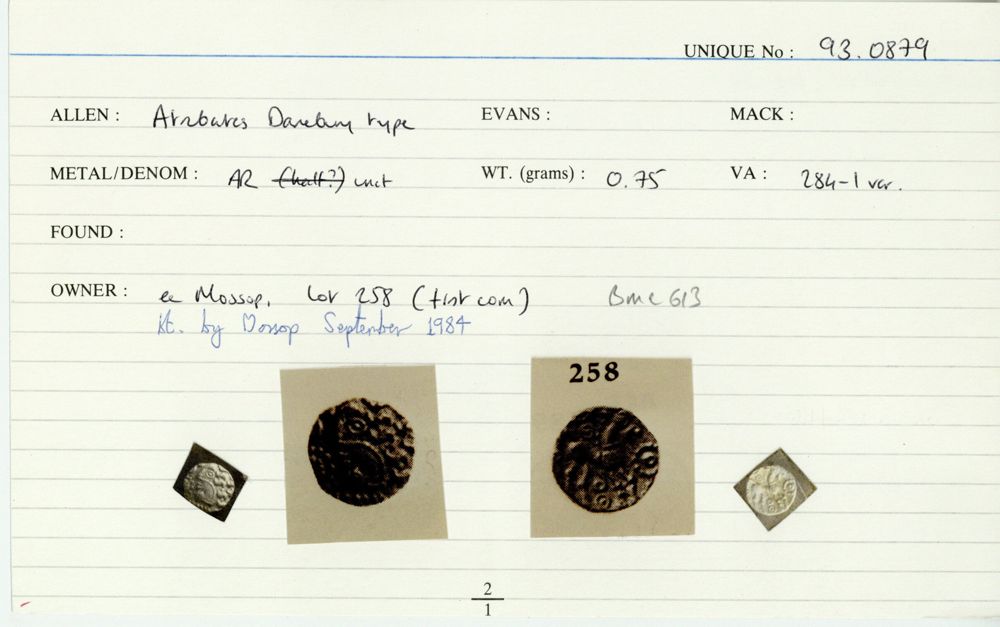 UNIQUE No : 93.0879
ALLEN : Atrebates Danebury type EVANS : MACK :
METAL/DENOM : AR (half?) unit WT. (grams) : 0.75 VA : 284-1 var.
FOUND :
OWNER : ex Mossop, Lot 258 (first coin) BMC 613
bt. by Mossop September 1984
258
2
1